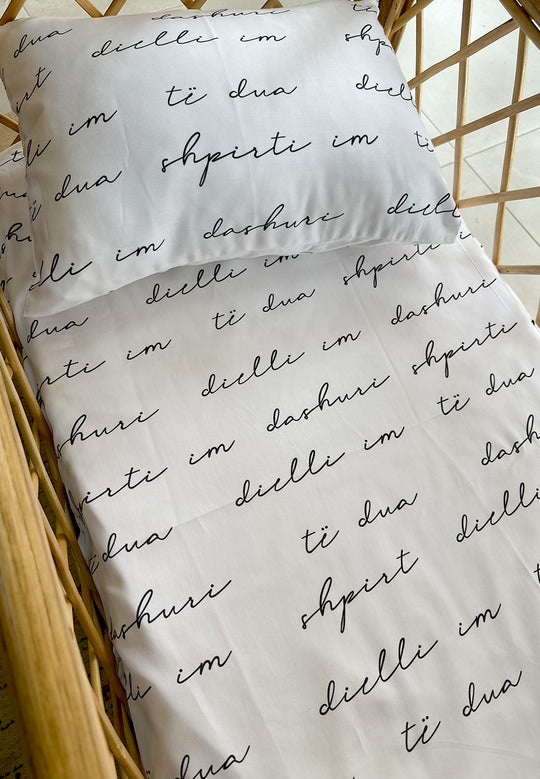 dashuri
dua dielli im
shpirt të dua dielli
im shpirti im
të dua dashuri
dielli im
dielli im shpirti
dua të dua dashuri
im dielli im shpirti
dashuri shpirti
im dashuri të dua
shpirti im dielli im
të dua të dua dielli
dashuri shpirt
im dielli im
dua të dua